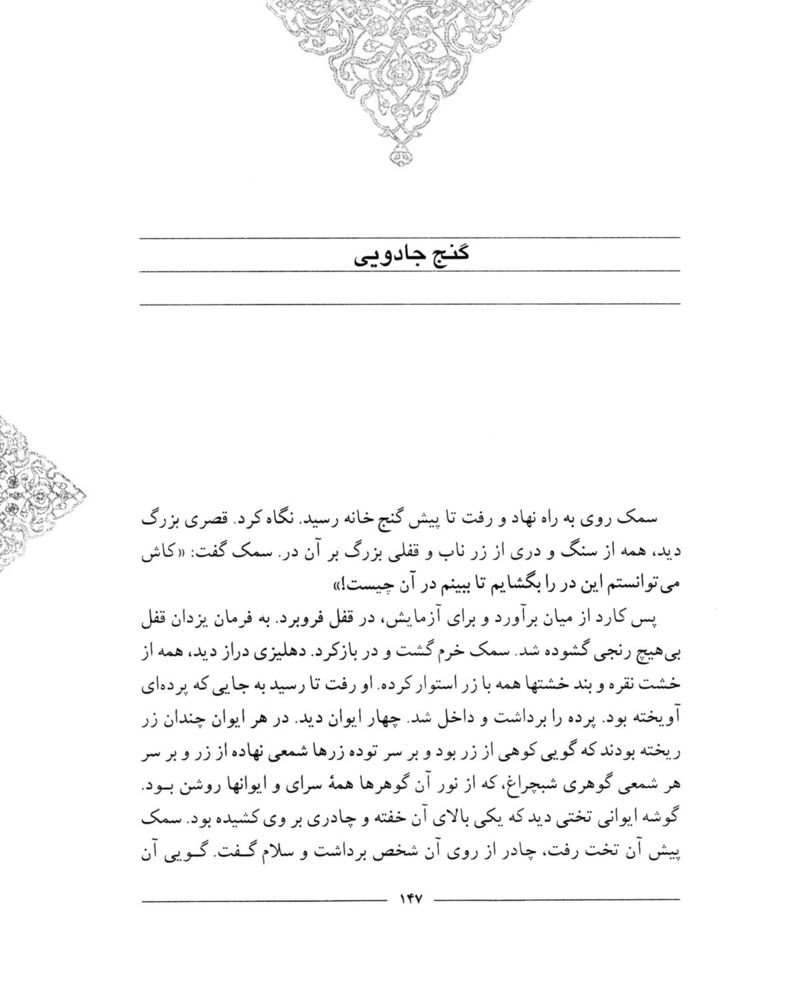 گنج جادویی
سمک روی به راه نهاد و رفت تا پیش گنج خانه رسید. نگاه کرد. قصری بزرگ
دید، همه از سنگ و دری از زر ناب و قفلی بزرگ بر آن در. سمک گفت: «کاش
می‌توانستم این در را بگشایم تا ببینم در آن چیست!»
پس کارد از میان برآورد و برای آزمایش، در قفل فروبرد. به فرمان یزدان قفل
بی‌هیچ رنجی گشوده شد. سمک خرم گشت و در بازکرد. دهلیزی دراز دید، همه از
خشت نقره و بند خشتها همه با زر استوار کرده. او رفت تا رسید به جایی که پرده‌ای
آویخته بود. پرده را برداشت و داخل شد. چهار ایوان دید. در هر ایوان چندان زر
ریخته بودند که گویی کوهی از زر بود و بر سر توده زرها شمعی نهاده از زر و بر سر
هر شمعی گوهری شبچراغ، که از نور آن گوهرها همهٔ سرای و ایوانها روشن بـود.
گوشه ایوانی تختی دید که یکی بالای آن خفته و چادری بر وی کشیده بود. سمک
پیش آن تخت رفت، چادر از روی آن شخص برداشت و سلام گـفت. گـویی آن
۱۴۷